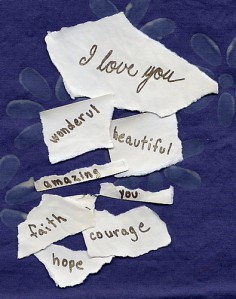 I love you
wonderful
beautiful
amazing
you
faith
courage
hope